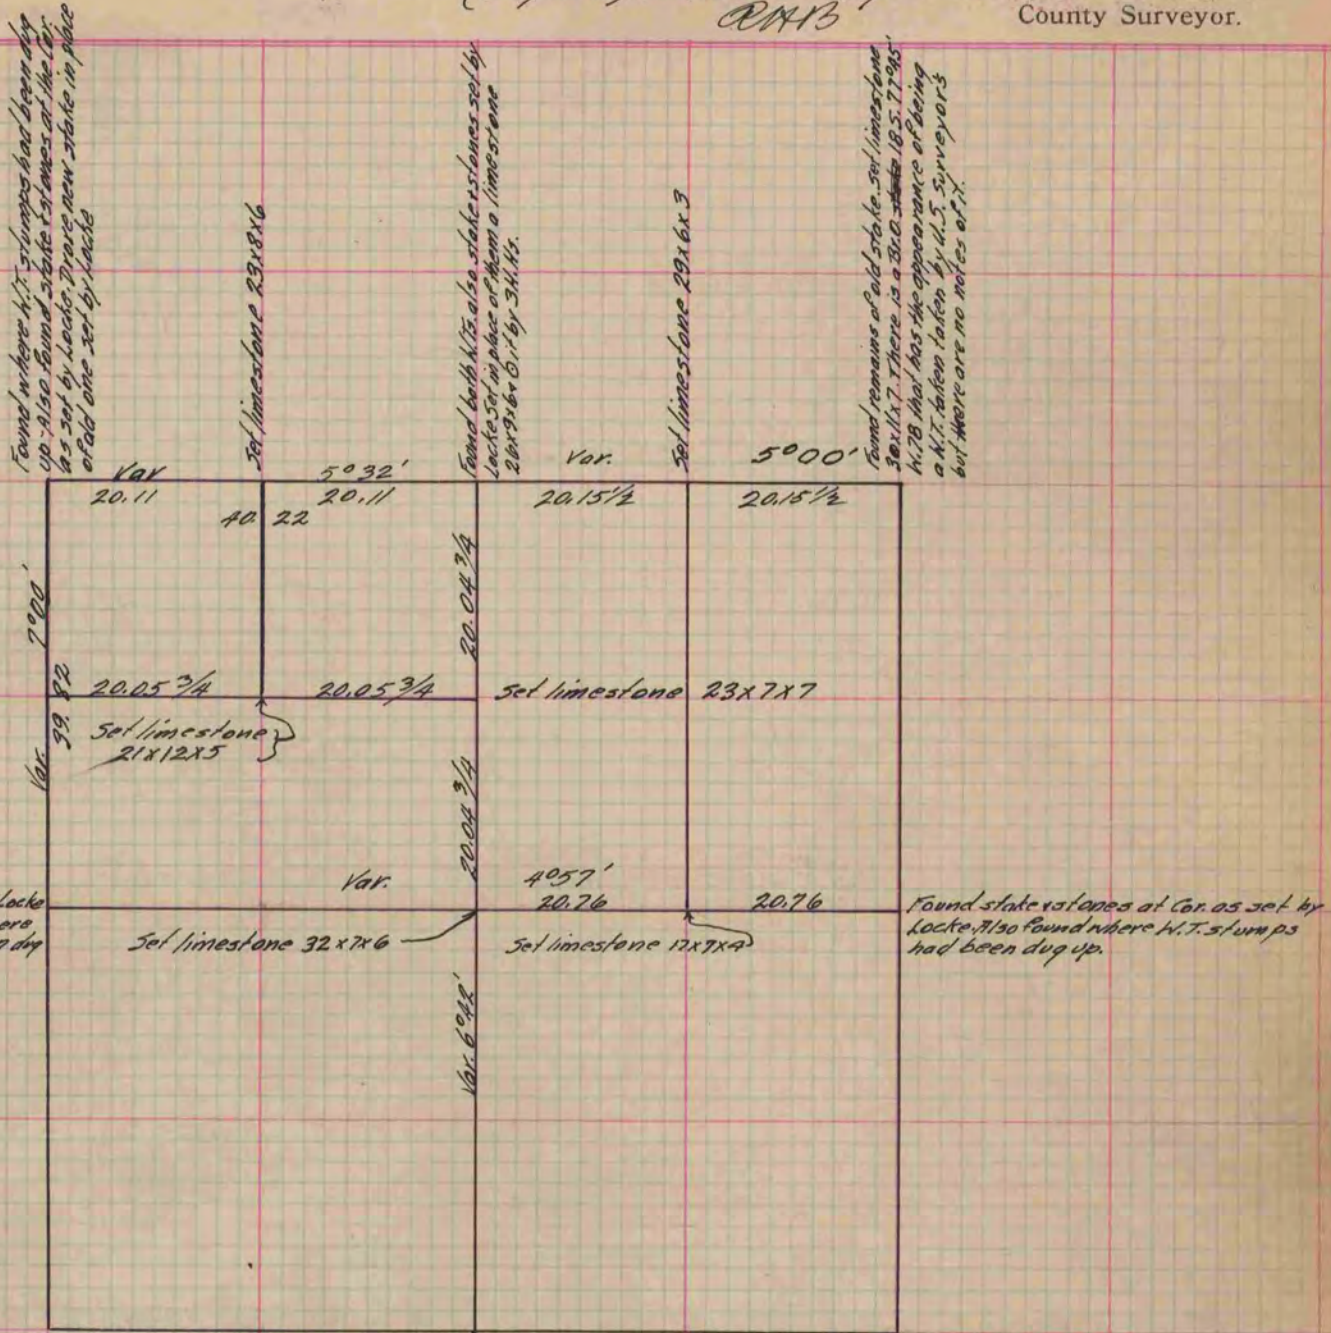 RHB
County Surveyor.
Found where W.T. stumps had been dug
up. Also found stake & stones at the Cor.
as set by Locke. Drove new stake in place
of old one set by Locke
Set limestone 23x8x6
Found both W.Ts. also stake & stones set by
Locke set in place of them a limestone
26x9x6
Set limestone 29x6x3
Found remains of old stake. Set limestone
30x11x7. There is a Br.O. 18 S. 77°45'
W.78 that has the appearance of being
a W.T. taken by U.S. Surveyor's
but there are no notes of it.
Var 5°32' Var. 5°00'
20.11 20.11 20.15 1/2 20.15 1/2
40 22
7°00'
20.04 3/4
39. 82
20.05 3/4 20.05 3/4 Set limestone 23x7x7
Set limestone
21x12x5
Var.
20.04 3/4
Var. 4°57'
20.76 20.76
Locke
ere
dug
Found stake & stones at Cor. as set by
Locke. Also found where W.T. stumps
had been dug up.
Set limestone 32x7x6
Set limestone 17x7x4
Var. 6°42'